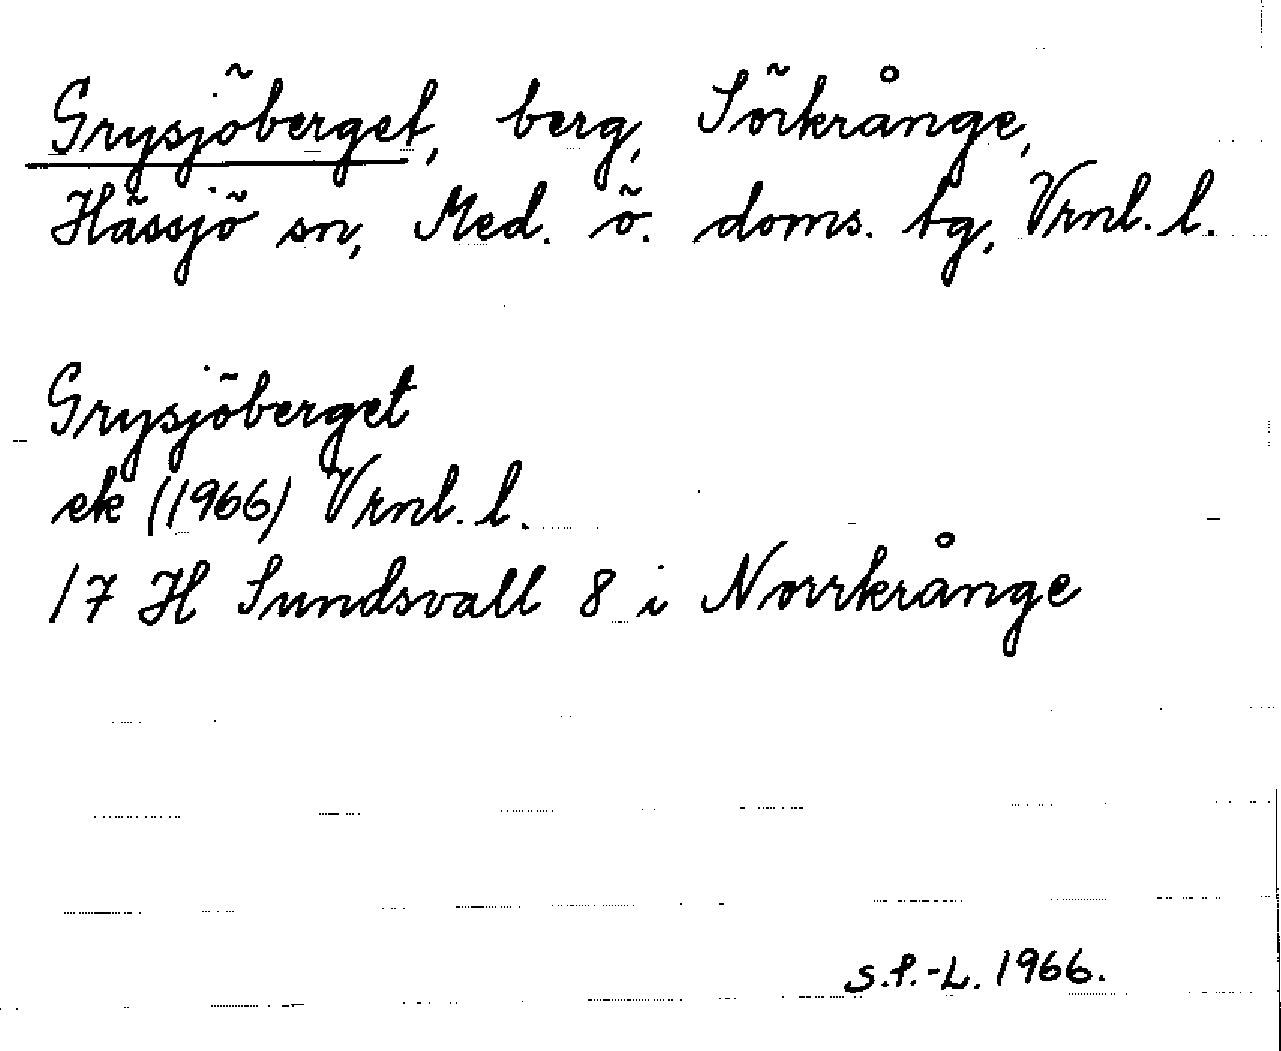 Grysjöberget, berg, Sörkrånge,
Hässjö sn, Med. ö. doms. tg, Vrnl. l.
Grysjöberget
ek (1966) Vrnl. l.
17 H Sundsvall 8 i Norrkrånge
S.P.-L. 1966.